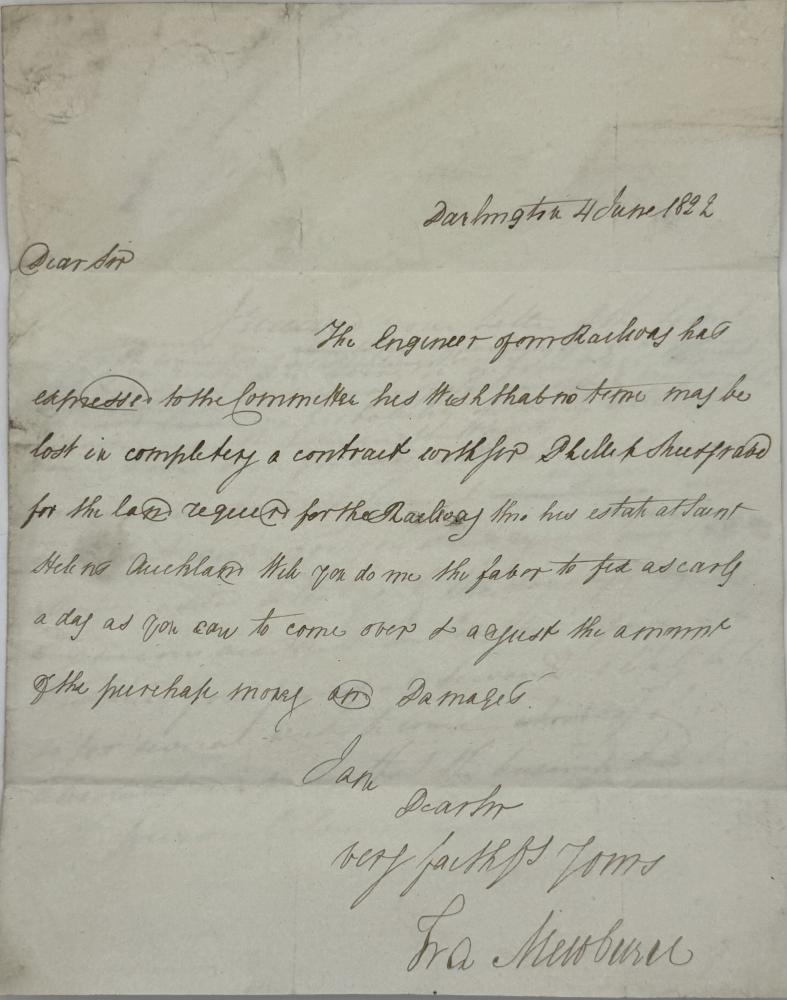 Darlington 4 June 1822
Dear Sir
The Engineer of our Railway has
expressed to the Committee his Wish that no time may be
lost in completing a contract with Sir Phillip Musgrave
for the land required for the Railway thro his estate at Saint
Helens Auckland Will you do me the favor to fix as early
a day as you can to come over & adjust the amount
of the purchase money and Damages.
I am
Dear Sir
very faithfy Yours
Fra Mewburn